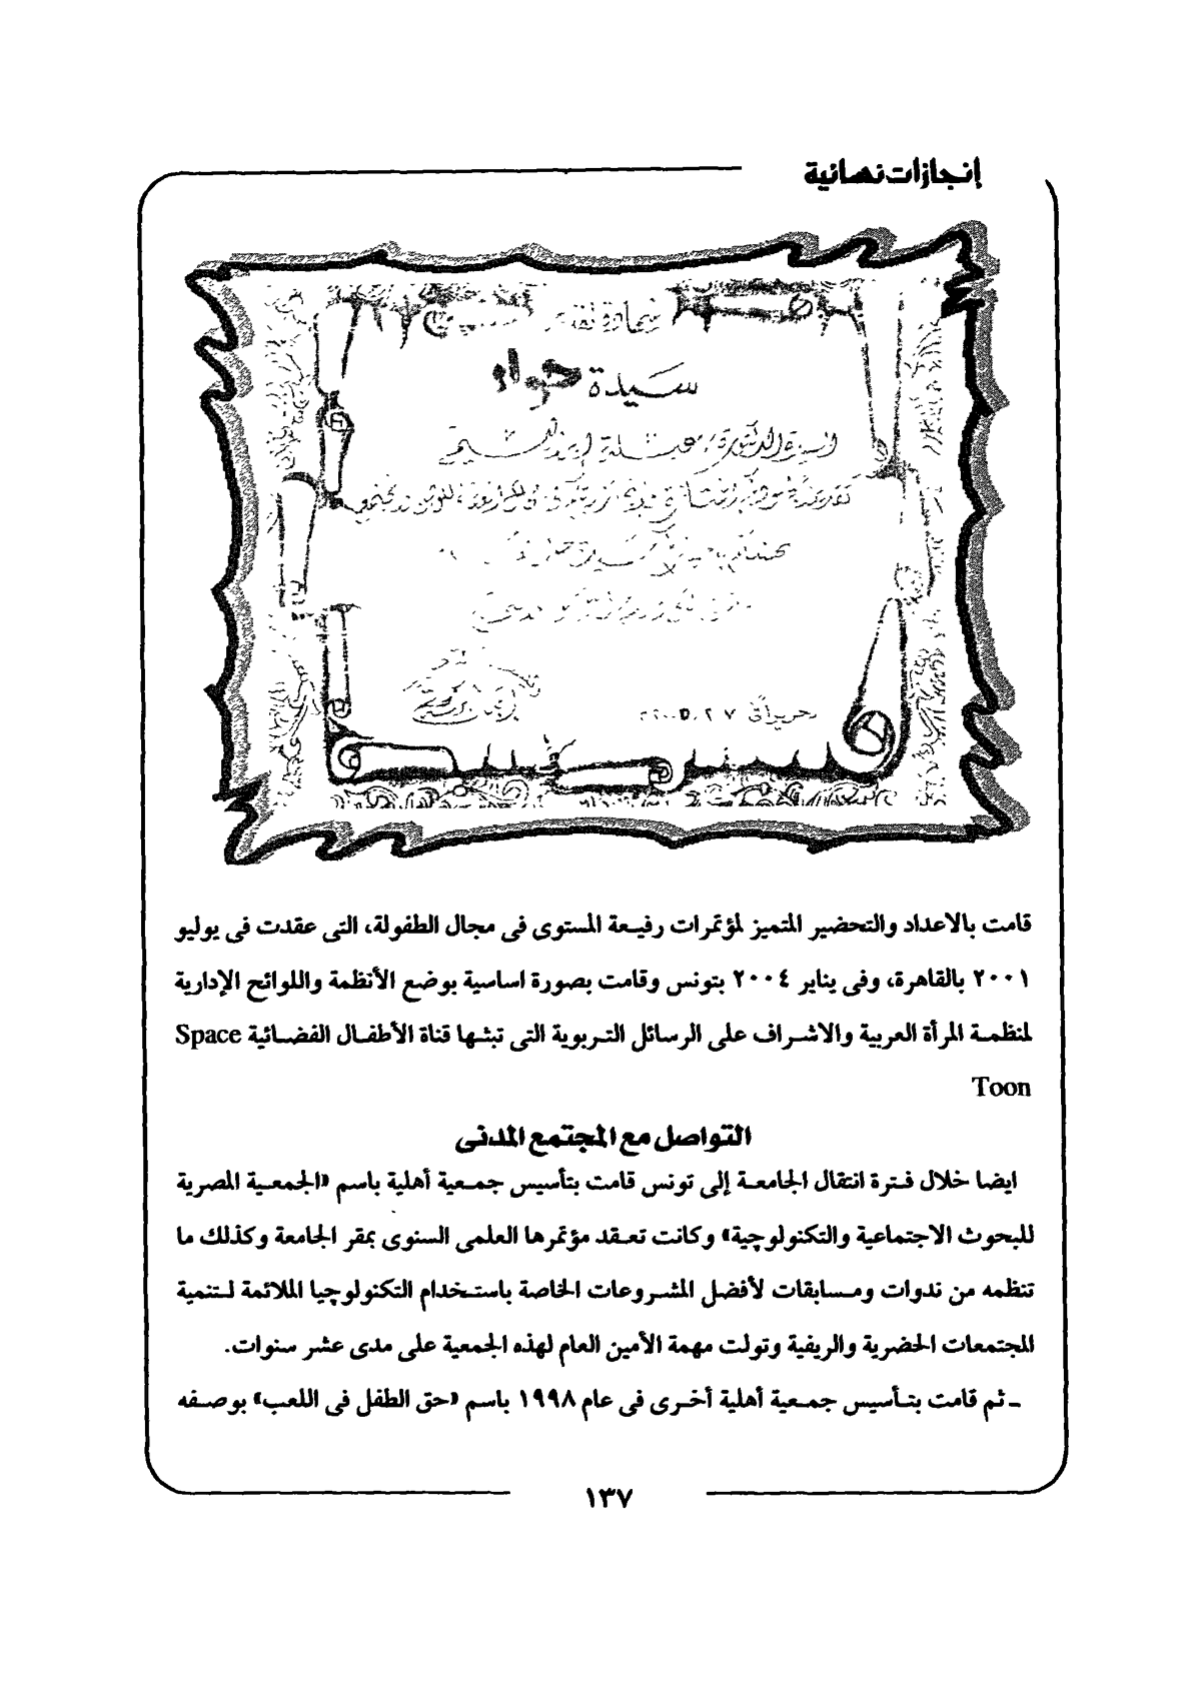 إنجازات نسائية
شهادة تقدير
سيدة حواء
تحريراً فى
قامت بالاعداد والتحضير المتميز لمؤتمرات رفيعة المستوى فى مجال الطفولة، التى عقدت فى يوليو
٢٠٠١ بالقاهرة، وفى يناير ٢٠٠٤ بتونس وقامت بصورة اساسية بوضع الأنظمة واللوائح الإدارية
لمنظمة المرأة العربية والاشراف على الرسائل التربوية التى تبثها قناة الأطفال الفضائية Space
Toon
التواصل مع المجتمع المدنى
ايضا خلال فترة انتقال الجامعة إلى تونس قامت بتأسيس جمعية أهلية باسم «الجمعية المصرية
للبحوث الاجتماعية والتكنولوچية» وكانت تعقد مؤتمرها العلمى السنوى بمقر الجامعة وكذلك ما
تنظمه من ندوات ومسابقات لأفضل المشروعات الخاصة باستخدام التكنولوچيا الملائمة لتنمية
المجتمعات الحضرية والريفية وتولت مهمة الأمين العام لهذه الجمعية على مدى عشر سنوات.
ـ ثم قامت بتأسيس جمعية أهلية أخرى فى عام ١٩٩٨ باسم «حق الطفل فى اللعب» بوصفه
١٣٧